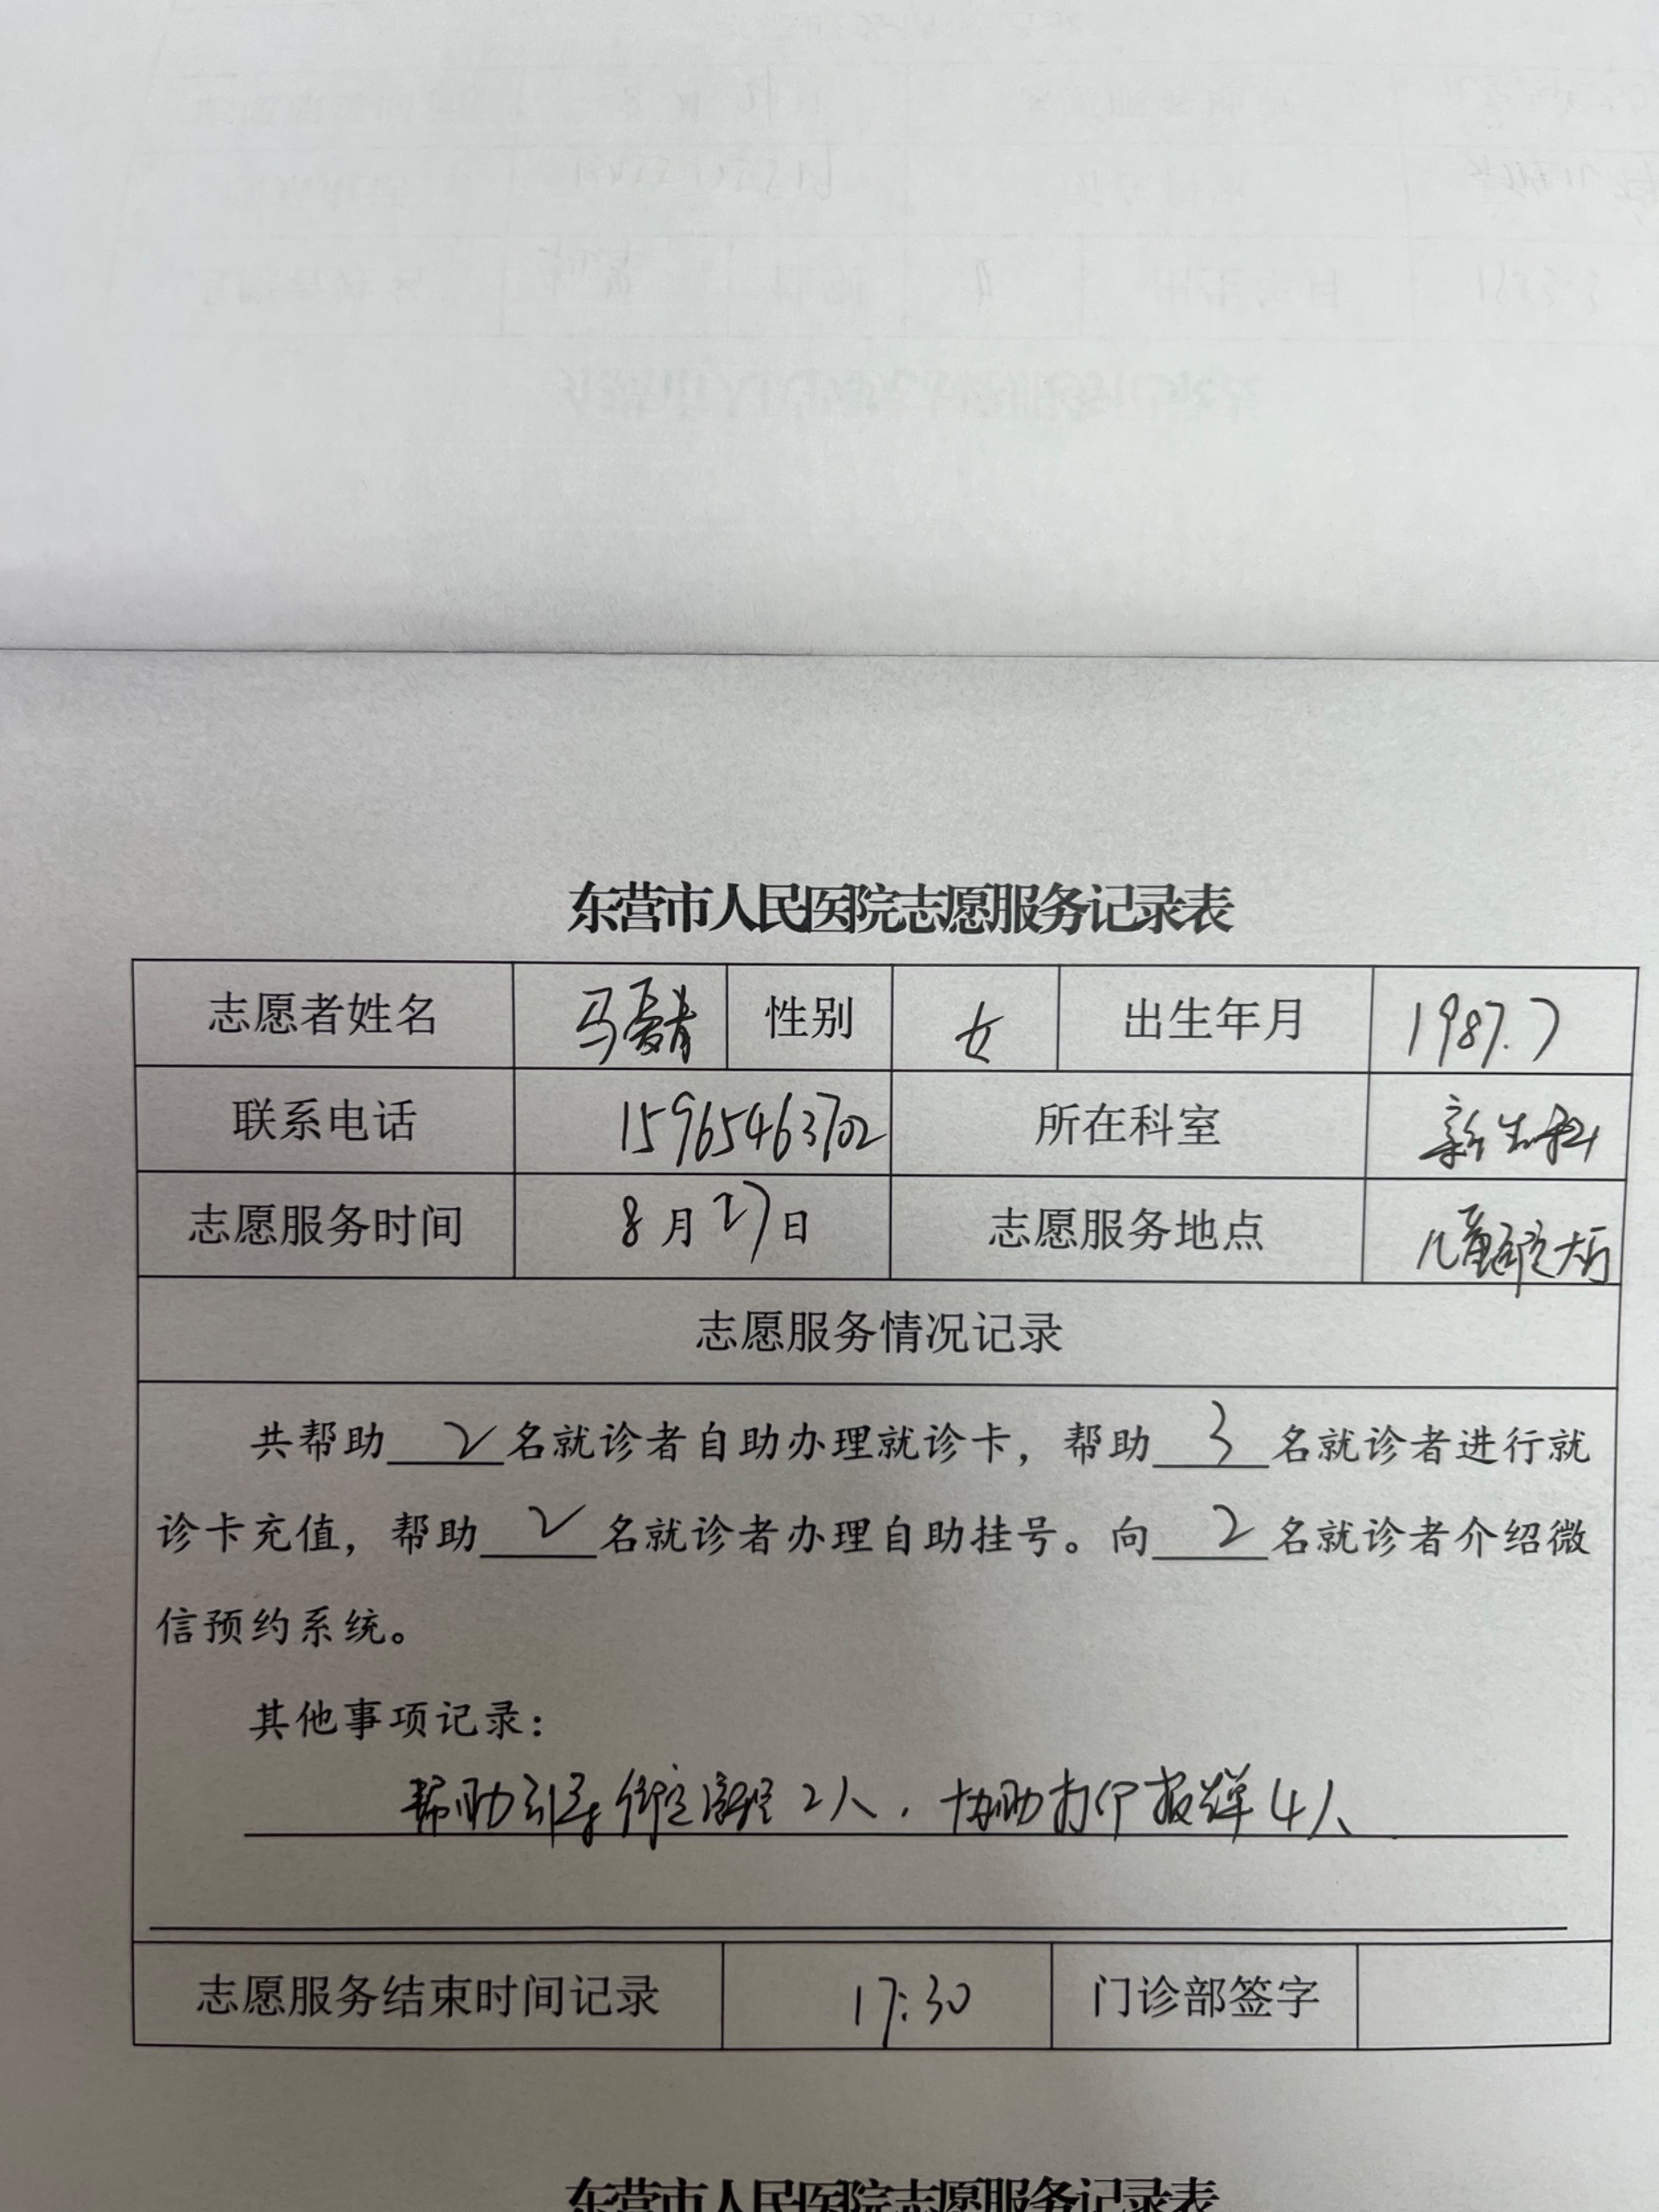 东营市人民医院志愿服务记录表
志愿者姓名 马 性别 女 出生年月 1987.7
联系电话 15965463702 所在科室 新生科
志愿服务时间 8月27日 志愿服务地点 儿童 大厅
志愿服务情况记录
共帮助 2 名就诊者自助办理就诊卡，帮助 3 名就诊者进行就
诊卡充值，帮助 2 名就诊者办理自助挂号。向 2 名就诊者介绍微
信预约系统。
其他事项记录：
帮助引导 2人，协助打印报告单4人
志愿服务结束时间记录 17:30 门诊部签字
东营市人民医院志愿服务记录表